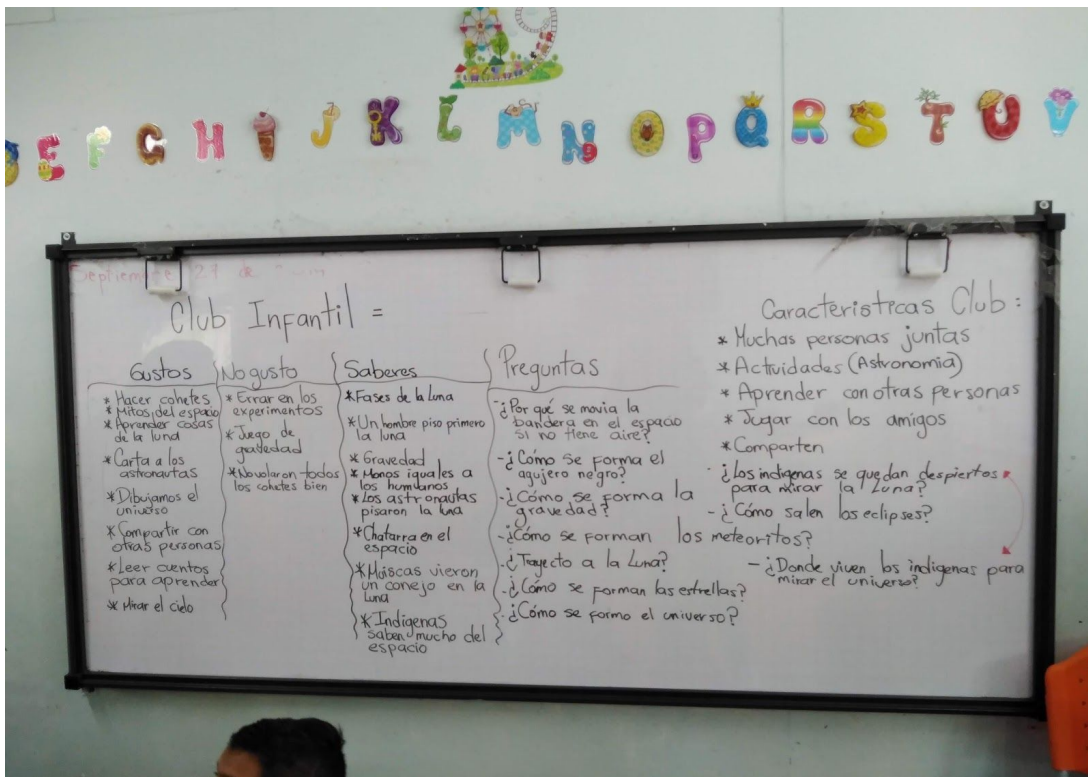 E F G H I J K L M N O P Q R S T U V
Septiembre 27 de
Club Infantil =
Gustos
* Hacer cohetes
* Mitos del espacio
* Aprender cosas
de la luna
* Carta a los
astronautas
* Dibujamos el
universo
* Compartir con
otras personas
* Leer cuentos
para aprender
* Mirar el cielo
No gusto
* Errar en los
experimentos
* Juego de
gravedad
* No volaron todos
los cohetes bien
Saberes
* Fases de la Luna
* Un hombre piso primero
la luna
* Gravedad
* Monos iguales a
los humanos
* Los astronautas
pisaron la luna
* Chatarra en el
espacio
* Muiscas vieron
un conejo en la
Luna
* Indigenas
saben mucho del
espacio
Preguntas
- ¿Por qué se movia la
bandera en el espacio
si no tiene aire?
- ¿Cómo se forma el
agujero negro?
- ¿Cómo se forma la
gravedad?
- ¿Cómo se forman los meteoritos?
- ¿Trayecto a la Luna?
- ¿Cómo se forman las estrellas?
- ¿Cómo se formo el universo?
Caracteristicas Club :
* Muchas personas juntas
* Actividades (Astronomia)
* Aprender con otras personas
* Jugar con los amigos
* Comparten
- ¿Los indigenas se quedan despiertos
para mirar la Luna?
- ¿Cómo salen los eclipses?
- ¿Donde viven los indigenas para
mirar el universo?